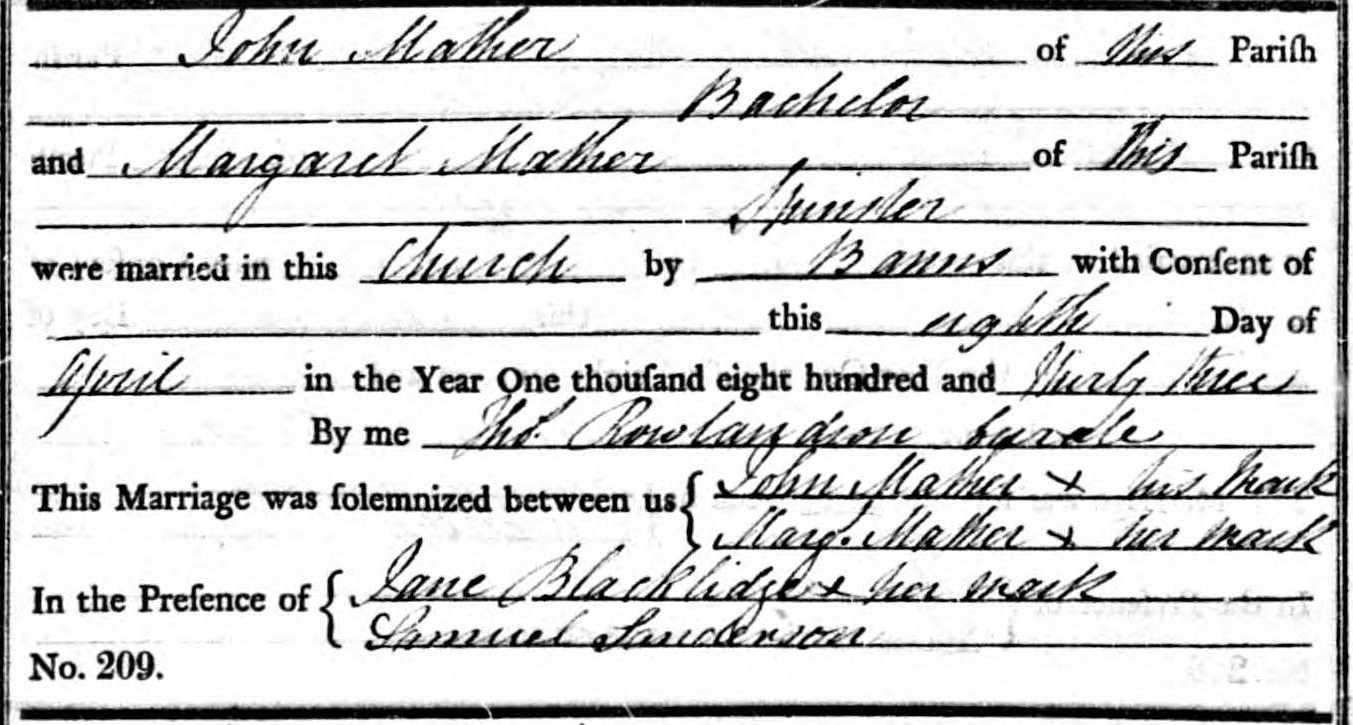 John Mather of this Pariſh
Bachelor
and Margaret Mather of this Pariſh
Spinster
were married in this Church by Banns with Conſent of
this eighth Day of
April in the Year One thouſand eight hundred and thirty three
By me Thos. Rowlandson Curate
This Marriage was ſolemnized between us { John Mather x his mark
Marg.t Mather x her mark
In the Preſence of { Jane Blacklidge x her mark
Samuel Sanderson
No. 209.